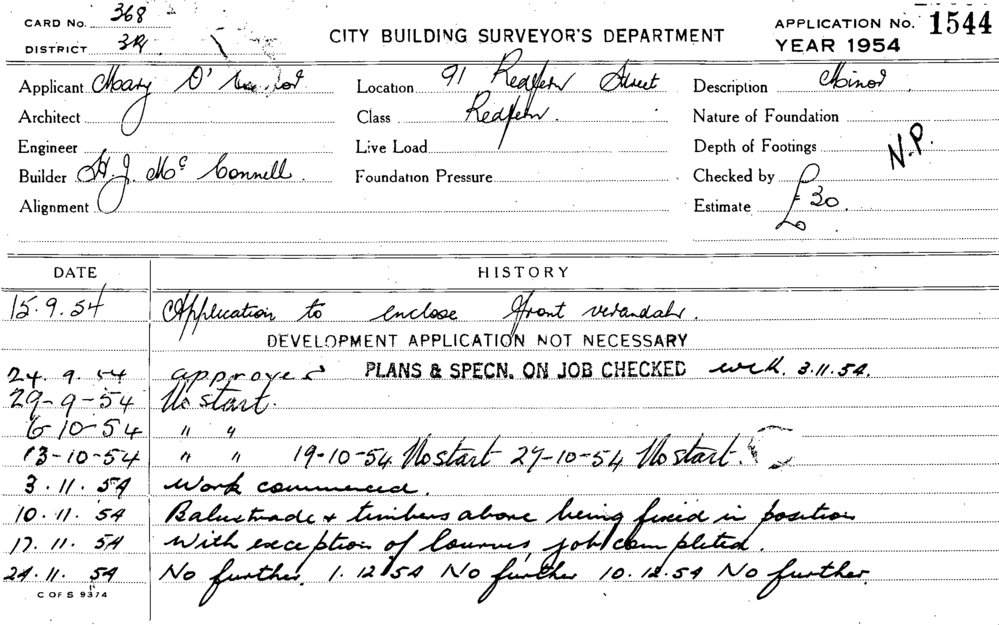 CARD No. 368
DISTRICT 3R
CITY BUILDING SURVEYOR'S DEPARTMENT
APPLICATION No. 1544
YEAR 1954
Applicant Mary O'
Location 91 Redfern Street
Description Minor
Architect
Class Redfern.
Nature of Foundation
Engineer
Live Load
Depth of Footings N.P.
Builder H. J. McConnell.
Foundation Pressure
Checked by
Alignment
Estimate £30.
DATE HISTORY
15.9.54 Application to enclose front verandah.
DEVELOPMENT APPLICATION NOT NECESSARY
24.9.54 approved PLANS & SPECN. ON JOB CHECKED 3.11.54.
29-9-54 No start.
6-10-54 " "
13-10-54 " " 19-10-54 No start 27-10-54 No start.
3.11.54 Work commenced.
10.11.54 Balustrade & timbers above being fixed in position
17.11.54 With exception of louvres, job completed.
24.11.54 No further. 1.12.54 No further 10.12.54 No further.
C OF S 9374